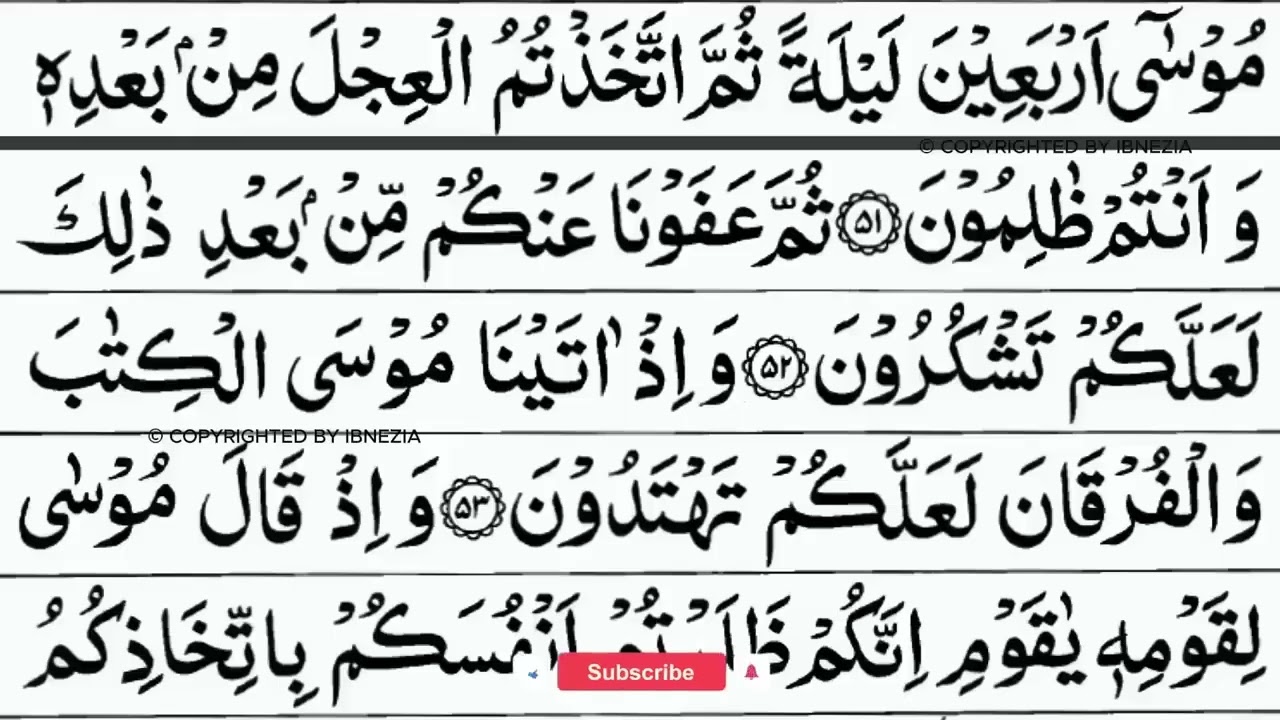 مُوْسٰۤى اَرْبَعِيْنَ لَيْلَةً ثُمَّ اتَّخَذْتُمُ الْعِجْلَ مِنْۢ بَعْدِهٖ
© COPYRIGHTED BY IBNEZIA
وَ اَنْتُمْ ظٰلِمُوْنَ ۵۱ ثُمَّ عَفَوْنَا عَنْكُمْ مِّنْۢ بَعْدِ ذٰلِكَ
لَعَلَّكُمْ تَشْكُرُوْنَ ۵۲ وَ اِذْ اٰتَيْنَا مُوْسَى الْكِتٰبَ
© COPYRIGHTED BY IBNEZIA
وَالْفُرْقَانَ لَعَلَّكُمْ تَهْتَدُوْنَ ۵۳ وَ اِذْ قَالَ مُوْسٰى
لِقَوْمِهٖ يٰقَوْمِ اِنَّكُمْ ظَلَمْتُمْ اَنْفُسَكُمْ بِاتِّخَاذِكُمُ
Subscribe